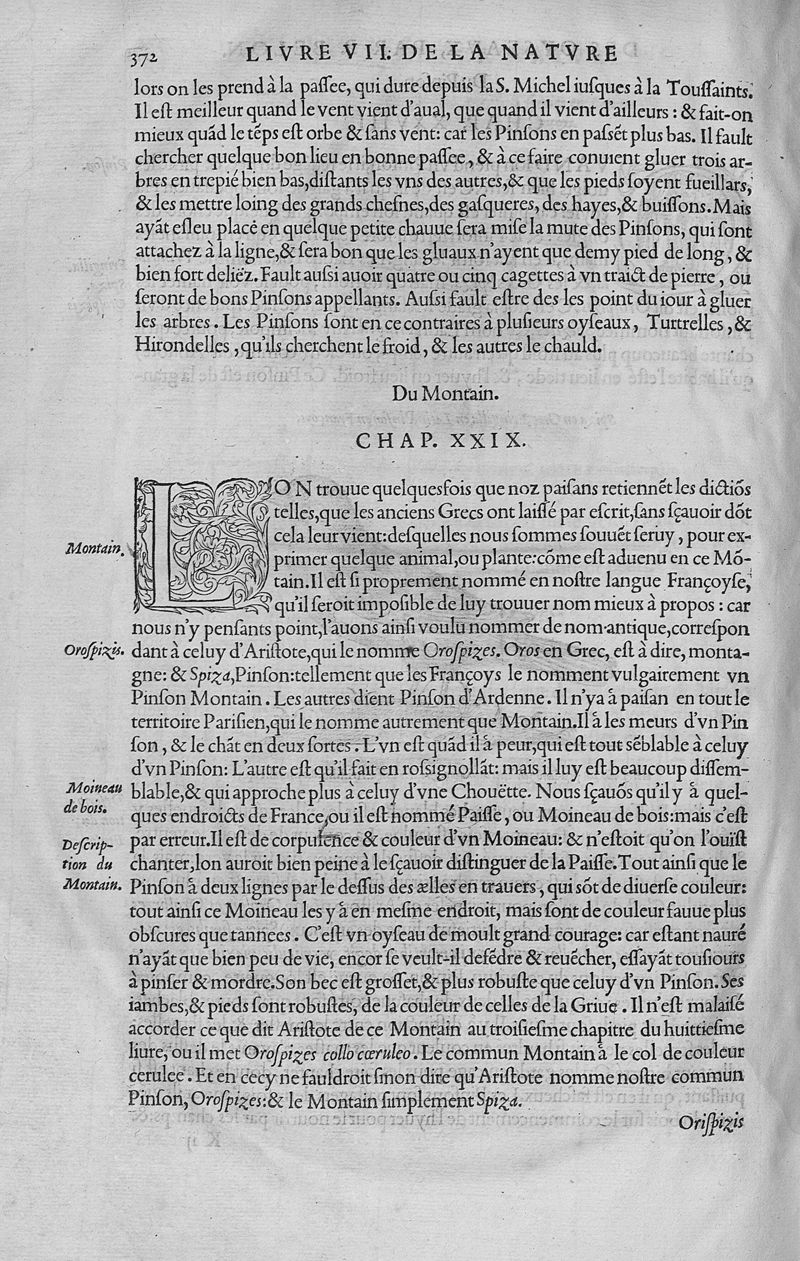 372
LIVRE VII. DE LA NATVRE
lors on les prend à la paſſee, qui dure depuis la S. Michel iuſques à la Touſſaints.
Il eſt meilleur quand le vent vient d'aual, que quand il vient d'ailleurs : & fait-on
mieux quãd le tẽps eſt orbe & ſans vent: car les Pinſons en paſsẽt plus bas. Il fault
chercher quelque bon lieu en bonne paſſee, & à ce faire conuient gluer trois ar-
bres en trepié bien bas, diſtants les vns des autres, & que les pieds ſoyent fueillars,
& les mettre loing des grands cheſnes, des gaſqueres, des hayes, & buiſſons. Mais
ayãt eſleu place en quelque petite chauue ſera miſe la mute des Pinſons, qui ſont
attachez à la ligne, & ſera bon que les gluaux n'ayent que demy pied de long, &
bien fort deliez. Fault auſsi auoir quatre ou cinq cagettes à vn traict de pierre, ou
ſeront de bons Pinſons appellants. Auſsi fault eſtre des les point du iour à gluer
les arbres. Les Pinſons ſont en ce contraires à pluſieurs oyſeaux, Turtrelles, &
Hirondelles, qu'ils cherchent le froid, & les autres le chauld.
Du Montain.
CHAP. XXIX.
LON trouue quelquesfois que noz paiſans retiennẽt les dictiõs
telles, que les anciens Grecs ont laiſſé par eſcrit, ſans ſçauoir dõt
cela leur vient: deſquelles nous ſommes ſouuẽt ſeruy, pour ex-
Montain.
primer quelque animal, ou plante: cõme eſt aduenu en ce Mõ-
tain. Il eſt ſi proprement nommé en noſtre langue Françoyſe,
qu'il ſeroit impoſsible de luy trouuer nom mieux à propos : car
nous n'y penſants point, l'auons ainſi voulu nommer de nom antique, correſpon
Oroſpizis.
dant à celuy d'Ariſtote, qui le nomme Oroſpizes. Oros en Grec, eſt à dire, monta-
gne: & Spiza, Pinſon: tellement que les Françoys le nomment vulgairement vn
Pinſon Montain. Les autres dient Pinſon d'Ardenne. Il n'y a paiſan en tout le
territoire Pariſien, qui le nomme autrement que Montain. Il à les meurs d'vn Pin
ſon, & le chãt en deux ſortes. L'vn eſt quãd il à peur, qui eſt tout sẽblable à celuy
d'vn Pinſon: L'autre eſt qu'il fait en roſsignollãt: mais il luy eſt beaucoup diſſem-
Moineau
blable, & qui approche plus à celuy d'vne Chouëtte. Nous ſçauõs qu'il y à quel-
de bois.
ques endroicts de France, ou il eſt nommé Paiſſe, ou Moineau de bois: mais c'eſt
Deſcrip-
par erreur. Il eſt de corpulence & couleur d'vn Moineau: & n'eſtoit qu'on l'ouïſt
tion du
chanter, lon auroit bien peine à le ſçauoir diſtinguer de la Paiſſe. Tout ainſi que le
Montain.
Pinſon à deux lignes par le deſſus des ælles en trauers, qui sõt de diuerſe couleur:
tout ainſi ce Moineau les y à en meſme endroit, mais ſont de couleur fauue plus
obſcures que tannees. C'eſt vn oyſeau de moult grand courage: car eſtant nauré
n'ayãt que bien peu de vie, encor ſe veult-il defẽdre & reuẽcher, eſſayãt touſiours
à pinſer & mordre. Son bec eſt groſſet, & plus robuſte que celuy d'vn Pinſon. Ses
iambes, & pieds ſont robuſtes, de la couleur de celles de la Griue. Il n'eſt malaiſé
accorder ce que dit Ariſtote de ce Montain au troiſieſme chapitre du huittieſme
liure, ou il met Oroſpizes collo cœruleo. Le commun Montain à le col de couleur
cerulee. Et en cecy ne fauldroit ſinon dire qu'Ariſtote nomme noſtre commun
Pinſon, Oroſpizes: & le Montain ſimplement Spiza.
Oriſpizis